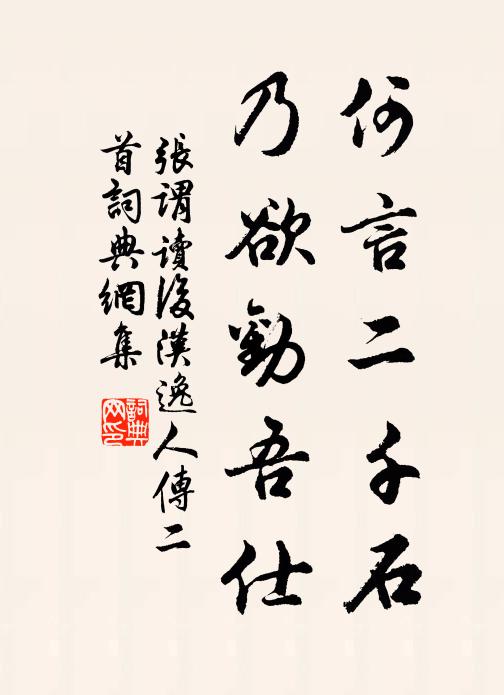 何言二千石
乃欲勸吾仕
張謂讀後漢逸人傳二
首詞典網集
詞典网印